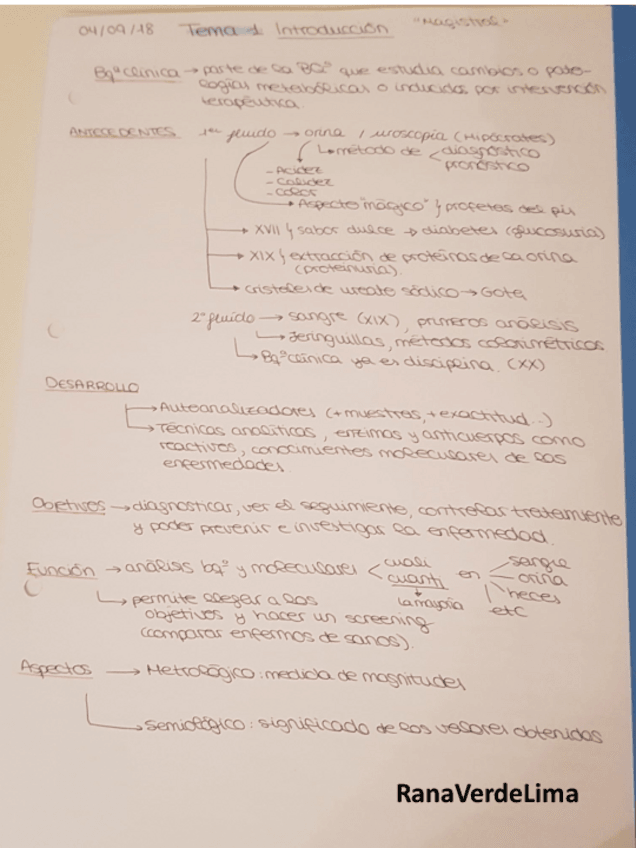 04/09/18 Tema 1 Introducción "Magistral"
Bqª Clínica → parte de la BQª que estudia cambios o pato-
logías metabólicas o inducidos por intervención
terapéutica.
ANTECEDENTES 1er fluido → orina / uroscopia (Hipócrates)
método de < diagnóstico
pronóstico
- Acidez
- Calidez
- Color
Aspecto "mágico" y profetas del pis
XVII y sabor dulce → diabetes (glucosuria)
XIX y extracción de proteínas de la orina
(proteinuria).
cristales de urato sódico → Gota
2º fluido → sangre (XIX), primeros análisis
Jeringuillas, métodos colorimétricos
Bqª clínica ya es disciplina. (XX)
DESARROLLO
Autoanalizadores (+muestras, +exactitud...)
Técnicas analíticas, enzimas y anticuerpos como
reactivos, conocimientos moleculares de las
enfermedades.
Objetivos → diagnosticar, ver el seguimiento, controlar tratamiento
y poder prevenir e investigar la enfermedad.
Función → análisis bqº y moleculares < cuali
cuanti en
la mayoría
sangre
orina
heces
etc
permite llegar a los
objetivos y hacer un screening
(comparar enfermos de sanos).
Aspectos → Metrológico: medida de magnitudes
semiológico: significado de los valores obtenidos
RanaVerdeLima